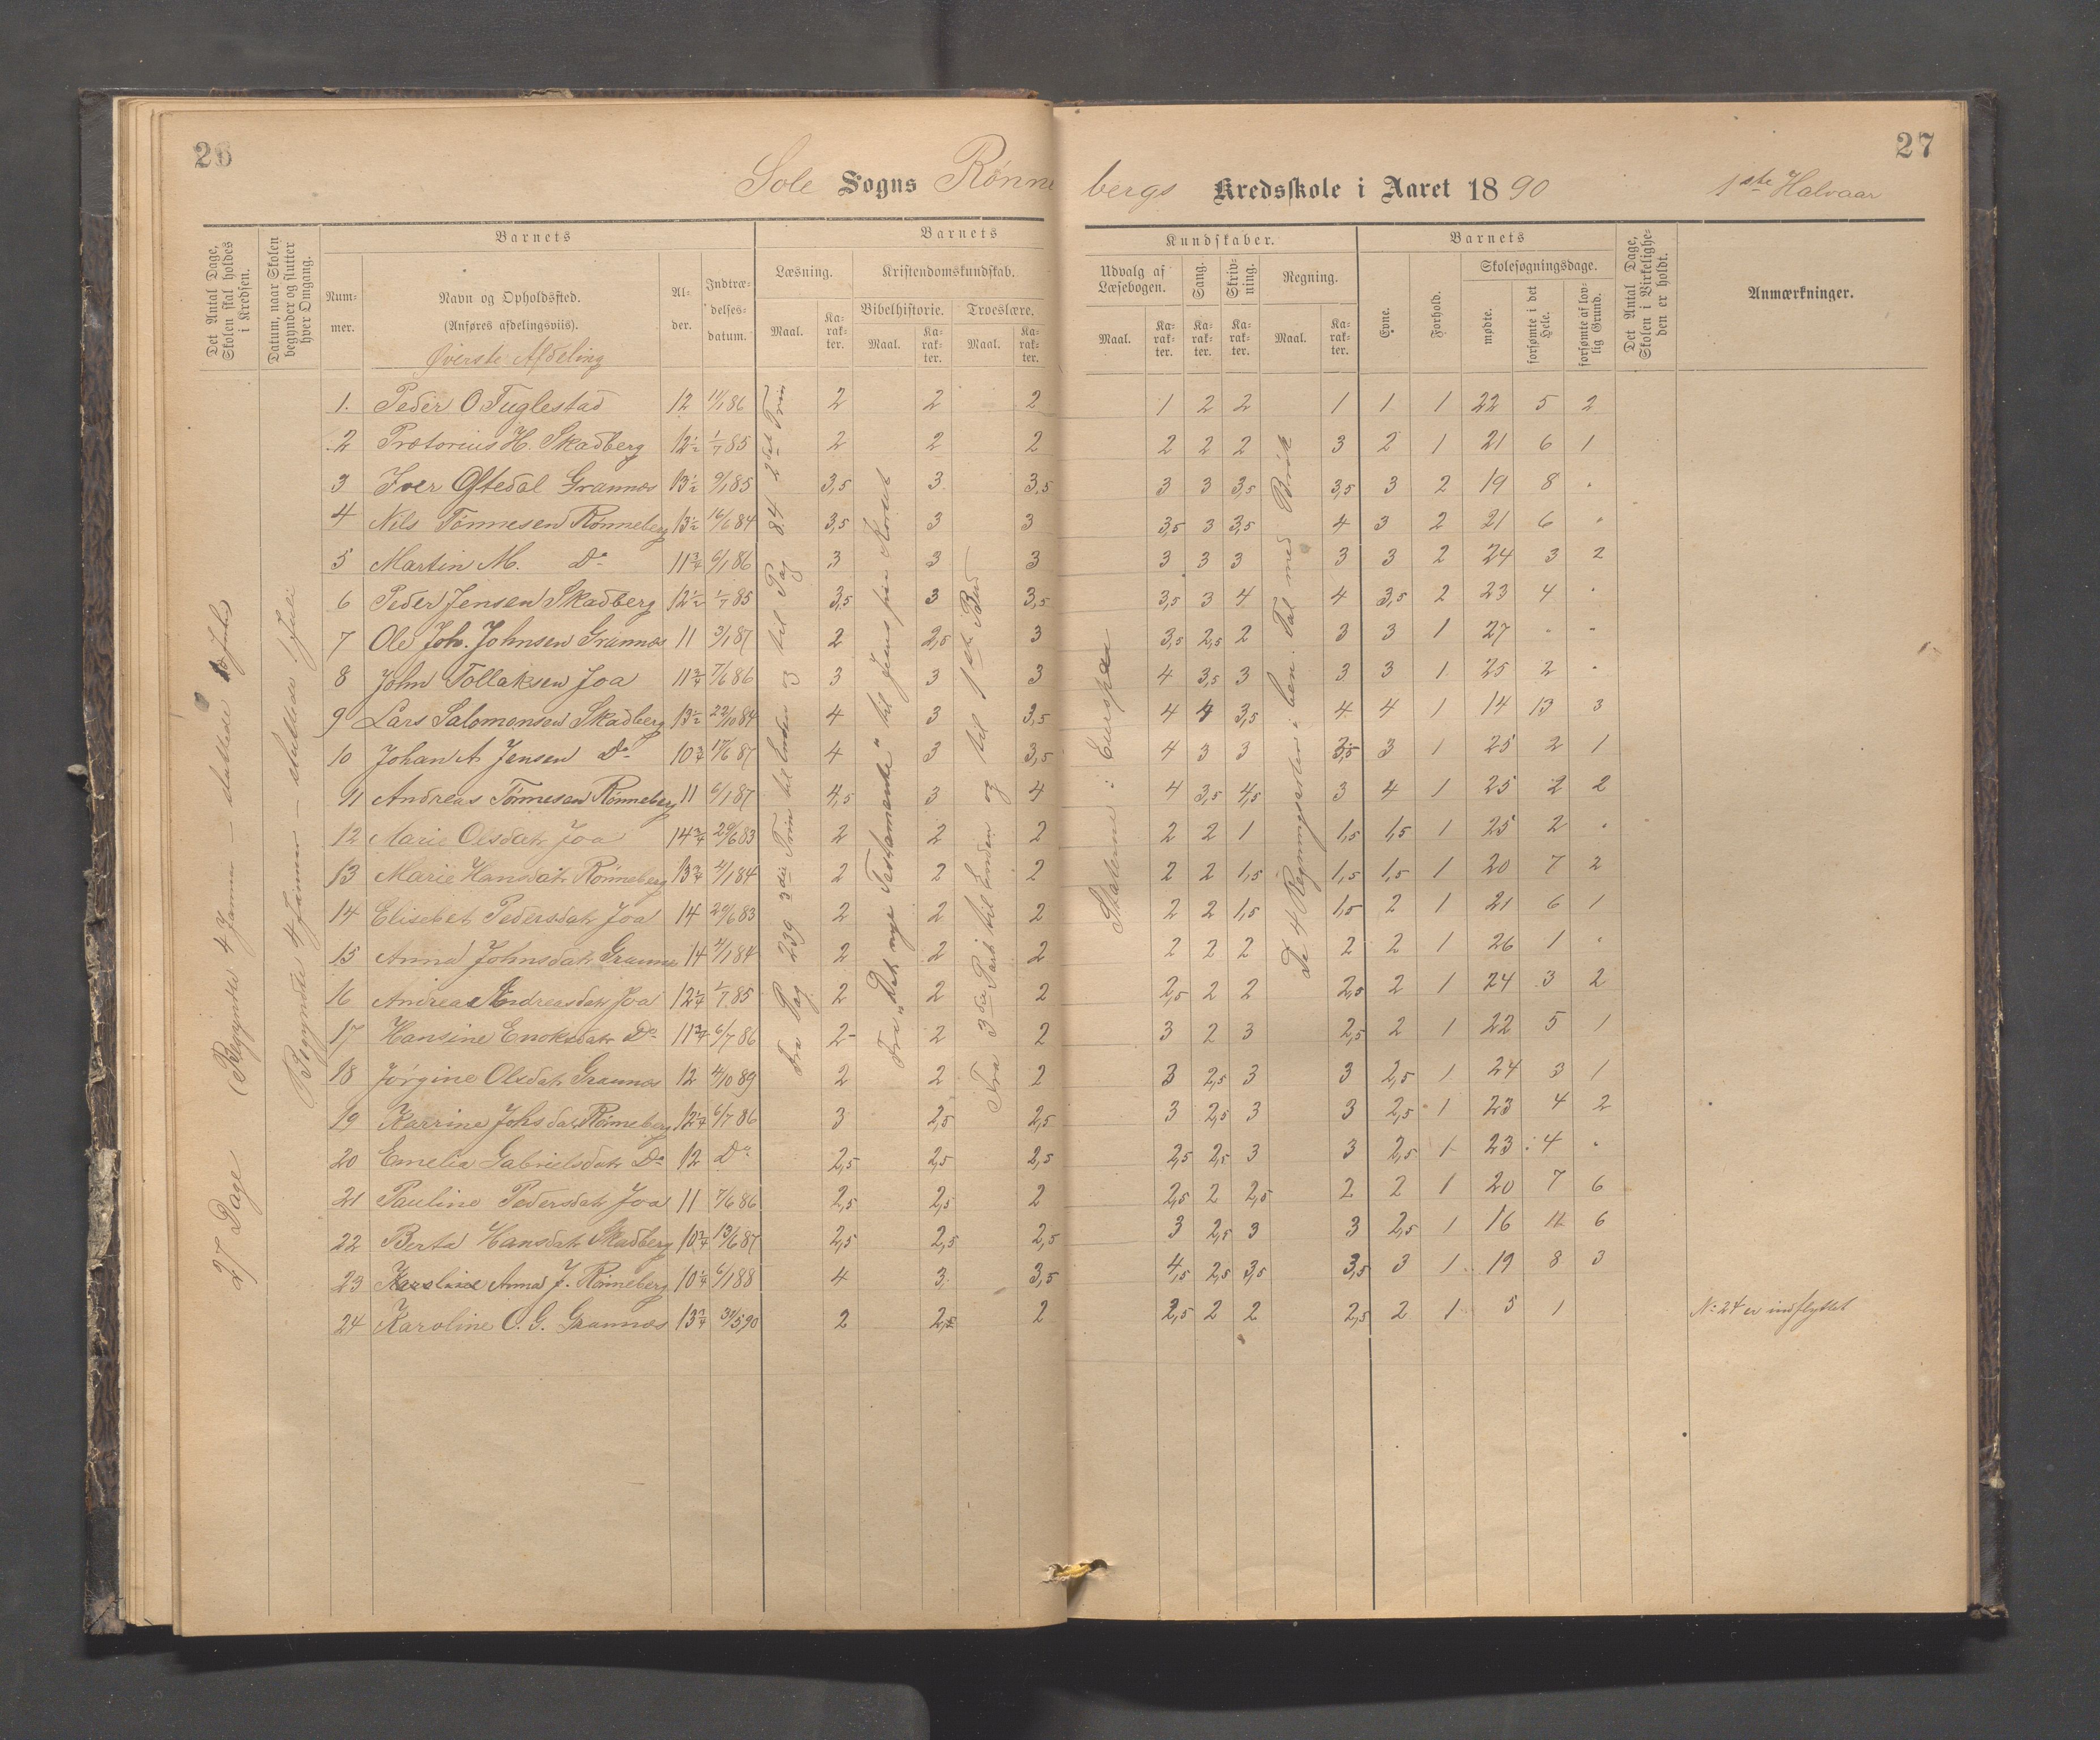 26
27
Sole Sogns Rønnebergs Kredsskole i Aaret 1890 1ste Halvaar
Det Antal Dage, Skolen skal holdes i Kredsen.
Datum, naar Skolen begynder og slutter hver Omgang.
Barnets
Nummer.
Navn og Opholdssted.
(Anføres afdelingsviis).
Øverste Afdeling
Alder.
Indtrædelsesdatum.
Barnets Kundskaber.
Læsning.
Maal. Karakter.
Kristendomskundskab.
Bibelhistorie. Troeslære.
Maal. Karakter. Maal. Karakter.
Udvalg af Læsebogen.
Maal. Karakter.
Sang. Karakter.
Skrivning. Karakter.
Regning.
Maal. Karakter.
Barnets
Evne. Forhold.
Skolesøgningsdage.
mødte. forsømte i det Hele. forsømte af lovlig Grund.
Det Antal Dage, Skolen i Virkeligheden er holdt.
Anmærkninger.
27 Dage
Begyndte 4 Januar – sluttede Juli
Begyndte 4 Januar – sluttede 1 Juli
Fra Pag 239 3die Trin til Enden og til Pag 84 2det Trin
Fra „Det nye Testamente“ til Jesus paa Korset
Fra 3die Part til Enden og til 1ste Bud
Staterne i Europa
De 4 Regningsarter i ben. Tal med Brøk
1. Peder O. Fuglestad 12 11/1 86 2 2 2 1 2 2 1 1 1 22 5 2
2 Prætorius H. Skadberg 12½ 1/7 85 2 2 2 2 2 2 3 2 1 21 6 1
3 Iver Oftedal Grannæs 13½ 9/1 85 3,5 3 3,5 3 3 3,5 3,5 3 2 19 8 .
4 Nils Tønnesen Rønneberg 13½ 16/6 84 3,5 3 3 3,5 3 3,5 4 3 2 21 6 "
5 Martin M. Do 11¾ 6/1 86 3 3 3 3 3 3 3 3 2 24 3 2
6 Peder Jensen Skadberg 12½ 1/7 85 3,5 3 3,5 3,5 3 4 4 3,5 2 23 4 .
7 Ole Joh. Johnsen Grannæs 11 3/1 87 2 2,5 3 3,5 2,5 2 3 3 1 27 - -
8 John Tollaksen Joa 11¾ 7/6 86 3 3 3 4 3,5 3 3 3 1 25 2 .
9 Lars Salomonsen Skadberg 13½ 22/10 84 4 3 3,5 4 4 3,5 4 4 1 14 13 3
10 Johan A Jensen Do 10¾ 17/6 87 4 3 3,5 4 3 3 3,5 3 1 25 2 1
11 Andreas Tønnesen Rønneberg 11 6/1 87 4,5 3 4 4 3,5 4,5 3 4 1 25 2 2
12 Marie Olsdatr Joa 14¾ 29/6 83 2 2 2 2 2 1 1,5 1,5 1 25 2 .
13 Marie Hansdatr Rønneberg 13¾ 4/1 84 2 2 2 2 2 1,5 1,5 1,5 1 20 7 2
14 Elisebet Pedersdatr Joa 14 29/6 83 2 2 2 2 2 1,5 1,5 2 1 21 6 1
15 Anna Johnsdatr Grannæs 14 4/1 84 2 2 2 2 2 2 2 2 1 26 1 .
16 Andrea Andreasdatr Joa 12¼ 1/7 85 2 2 2 2,5 2 2 2,5 2 1 24 3 2
17 Hansine Enoksdatr Do 11¾ 6/7 86 2- 2 2 3 2 3 2,5 2 1 22 5 1
18 Jørgine Olsdatr Grannæs 12 4/10 89 2 2 2 3 2,5 3 3 2,5 1 24 3 1
19 Karrine Johsdatr Rønneberg 12¼ 6/7 86 3 2,5 2,5 3 2,5 3 3 2,5 1 23 4 2
20 Emelia Gabrielsdatr Do 12 Do 2,5 2,5 2,5 2,5 2,5 3 3 2,5 1 23 4 .
21 Pauline Pedersdatr Joa 11 7/6 86 2,5 2,5 2 2,5 2 2,5 2 2 1 20 7 6
22 Berta Hansdatr Skadberg 10¾ 13/6 87 2,5 2,5 2,5 3 2,5 3 3 2,5 1 16 11 6
23 Anna J. Rønneberg 10¼ 6/1 88 4 3 3,5 4,5 2,5 3,5 3,5 3 1 19 8 3
24 Karoline O. G. Grannæs 13¾ 31/5 90 2 2,5 2 2,5 2 2 2,5 2 1 5 1 No 24 er indflyttet